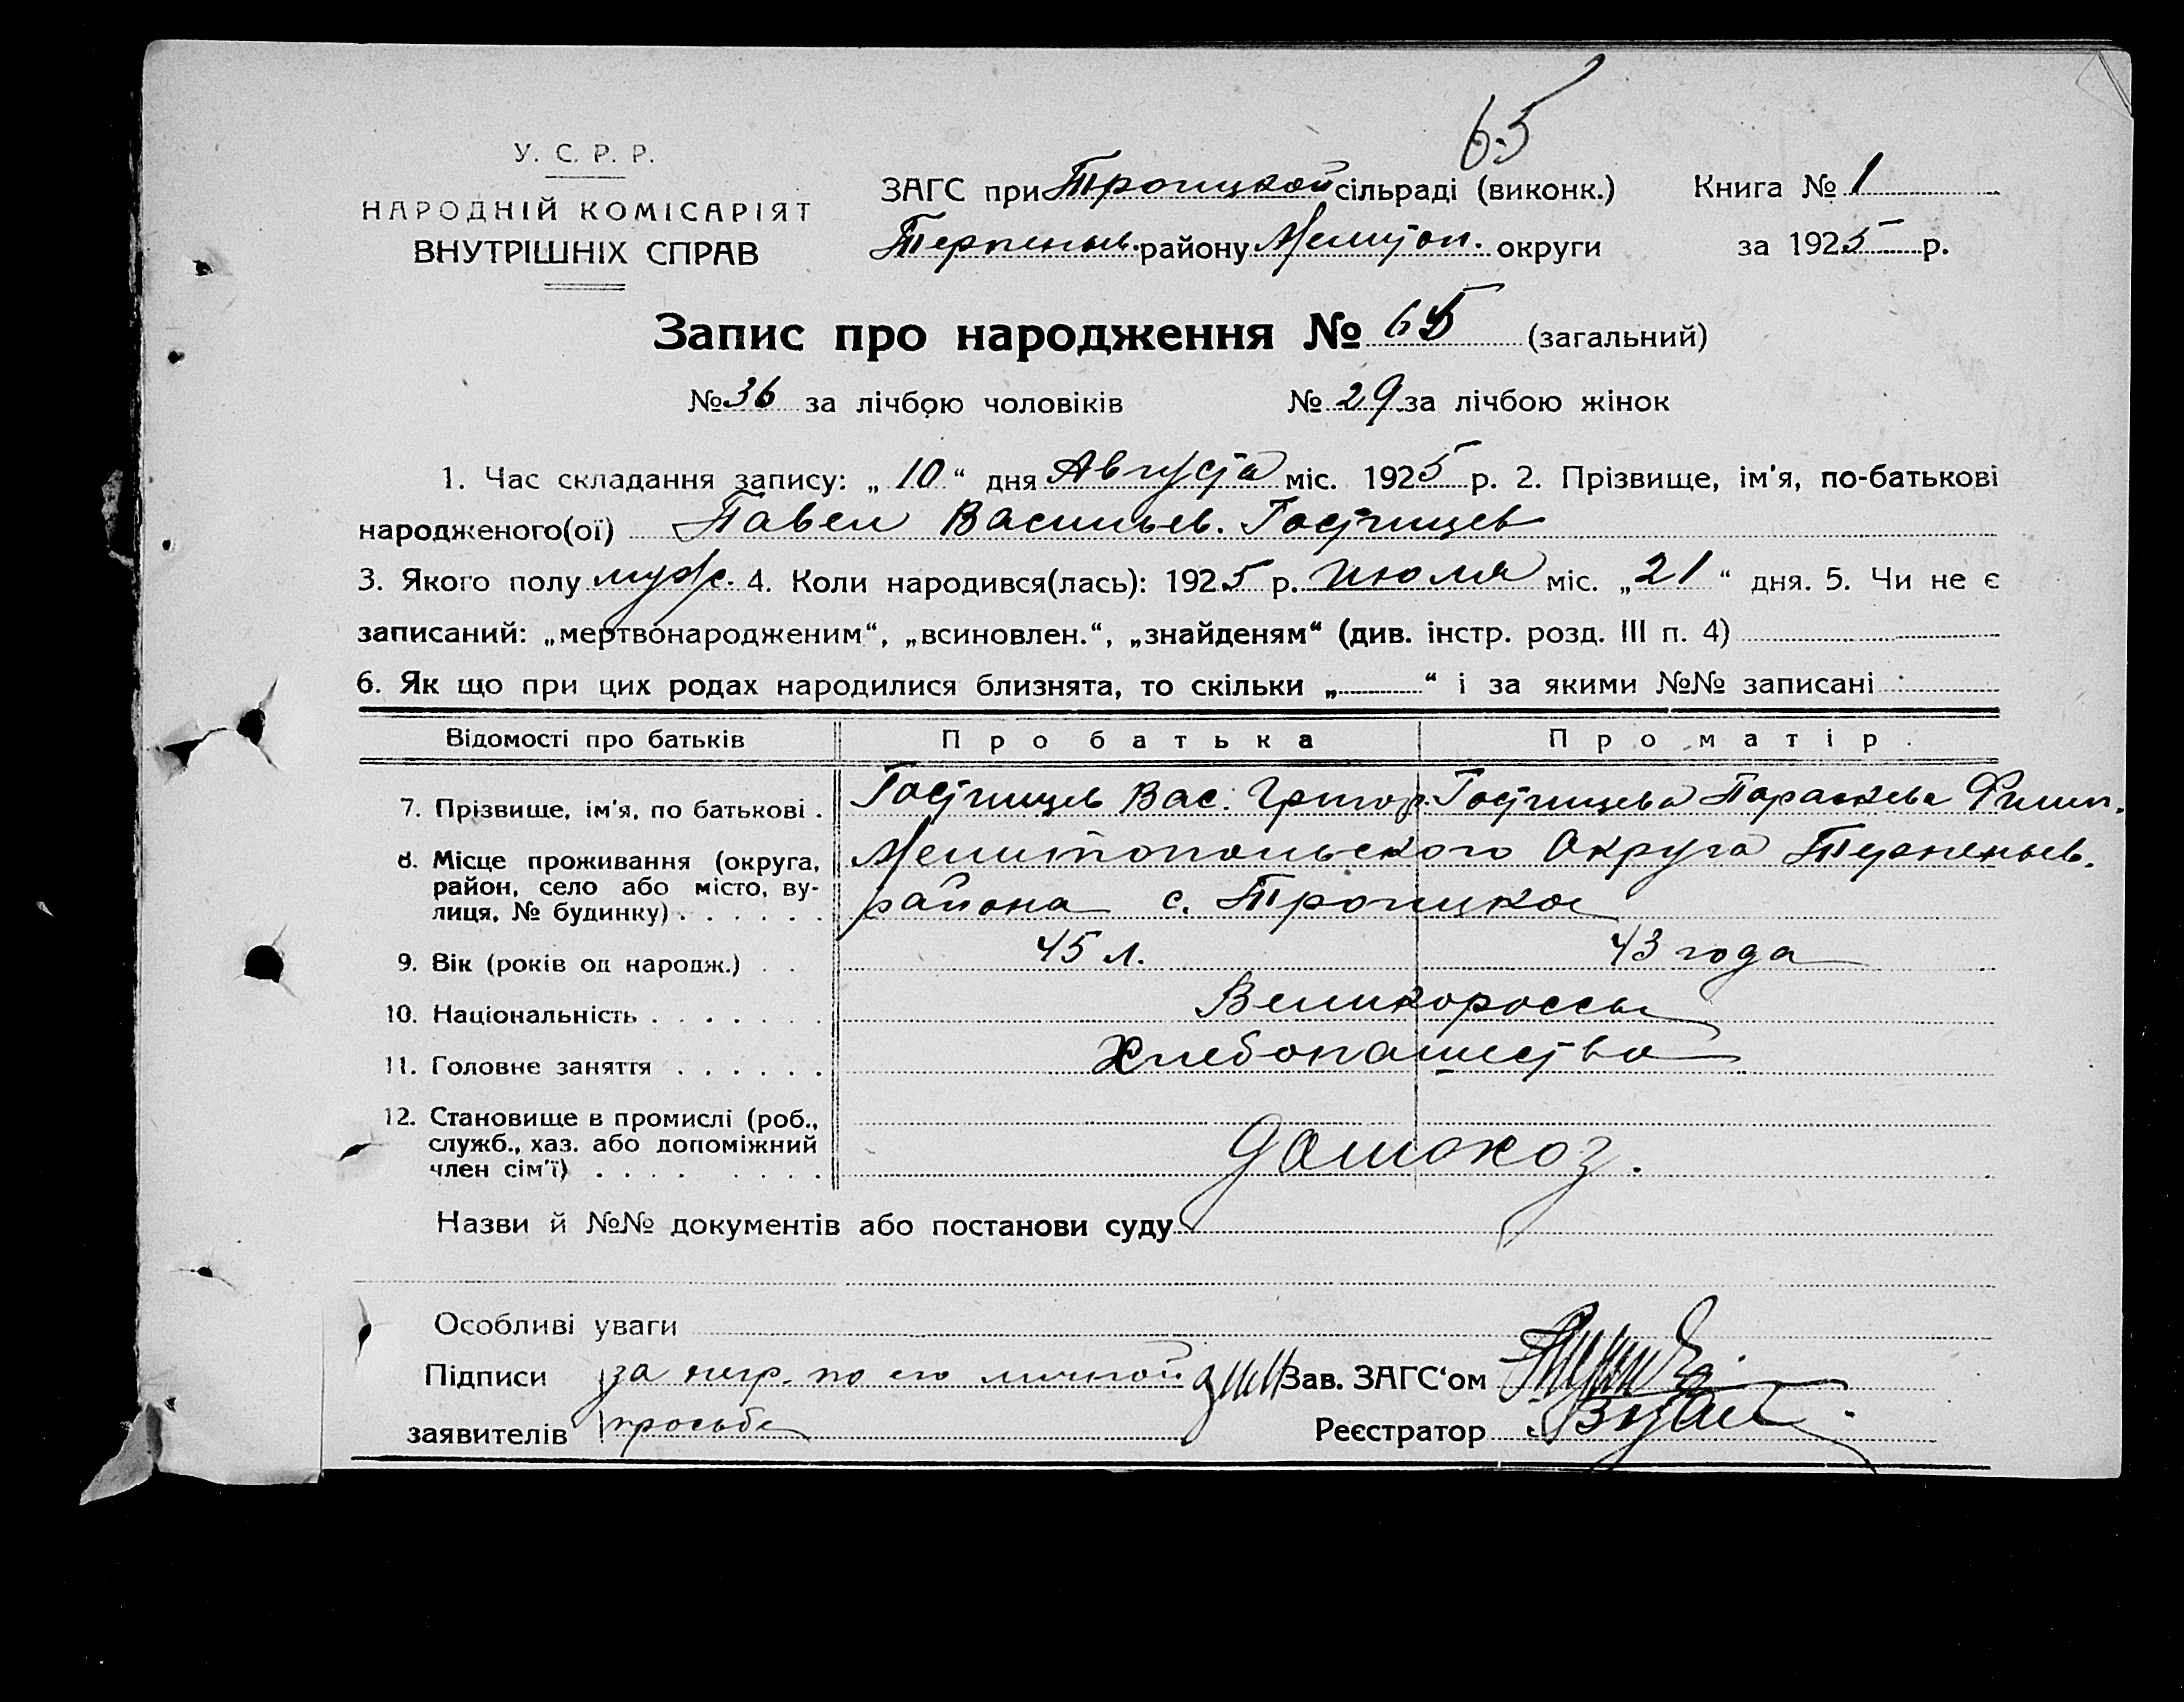 65
У. С. Р. Р.
НАРОДНІЙ КОМІСАРІЯТ
ВНУТРІШНІХ СПРАВ
ЗАГС при Троицкой сільраді (виконк.) Книга № 1
Терпеньев. району Мелитоп. округи за 1925 р.
Запис про народження № 65 (загальний)
№ 36 за лічбою чоловіків № 29 за лічбою жінок
1. Час складання запису: „ 10 “ дня Августа міс. 1925 р. 2. Прізвище, ім'я, по-батькові
народженого(ої) Павел Васильев. Гостищев
3. Якого полу муж. 4. Коли народився(лась): 1925 р. июля міс. „ 21 “ дня. 5. Чи не є
записаний: „мертвонародженим“, „всиновлен.“, „знайденям“ (див. інстр. розд. III п. 4)
6. Як що при цих родах народилися близнята, то скільки „ “ і за якими №№ записані
Відомості про батьків Про батька Про матір.
7. Прізвище, ім'я, по батькові . Гостищев Вас. Григор. Гостищева Параскева Филип.
8. Місце проживання (округа, Мелитопольского Округа Терпеньев.
район, село або місто, ву- района с. Троицкое
лиця, № будинку) . . . . . .
9. Вік (років од народж.) . . 45 л. 43 года
10. Національність . . . . . . . Великороссы
11. Головне заняття . . . . . . Хлебопашество
12. Становище в промислі (роб.,
служб., хаз. або допоміжний домохоз.
член сім'ї) . . . . . . . .
Назви й №№ документів або постанови суду
Особливі уваги
Підписи за негр. по его личной Зав. ЗАГС‘ом
заявителів просьбе Реєстратор